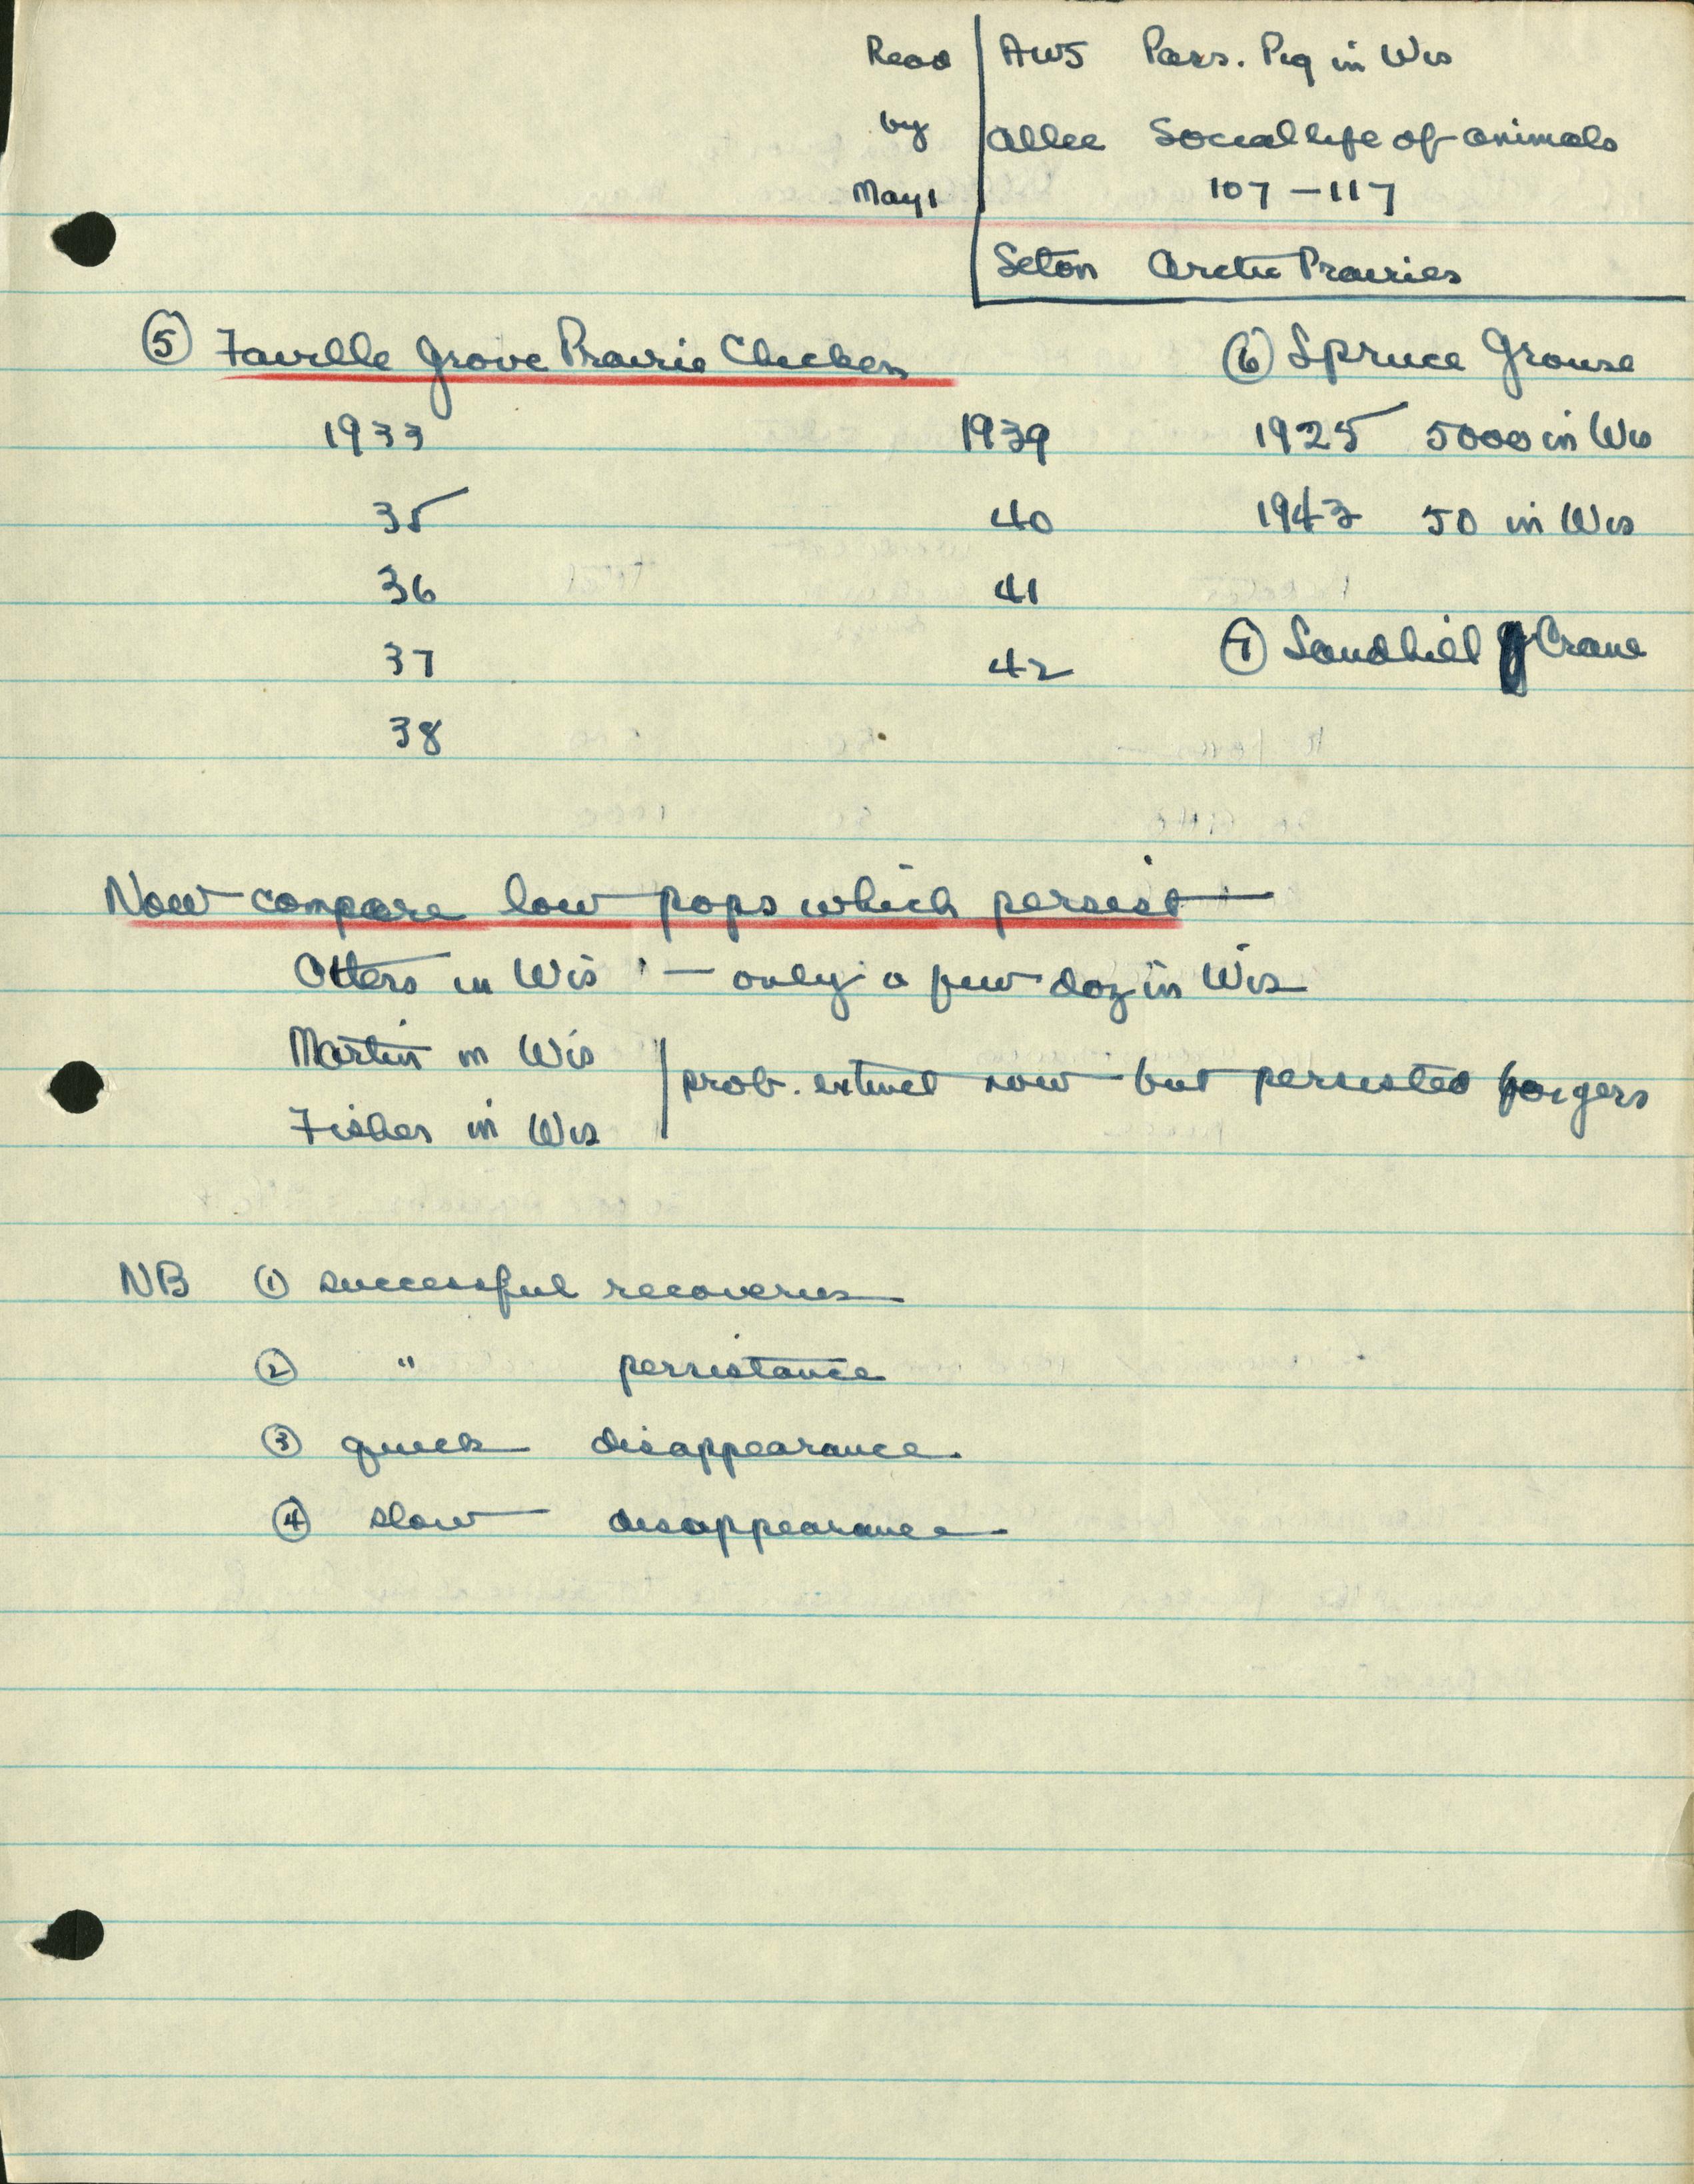 Read by May 1
AWS Pass. Pig in Wis
Allee Social life of animals
107 – 117
Seton Arctic Prairies
⑤ Faville Grove Prairie Chicken
1933 1939
35 40
36 41
37 42
38
⑥ Spruce Grouse
1925 5000 in Wis
1943 50 in Wis
⑦ Sandhill Crane
Now compare low pops which persist
Otters in Wis – only a few doz in Wis
Martin in Wis
Fisher in Wis
prob. extinct now but persisted for yers
NB ① successful recoveries
② " persistance
③ quick disappearance
④ slow disappearance